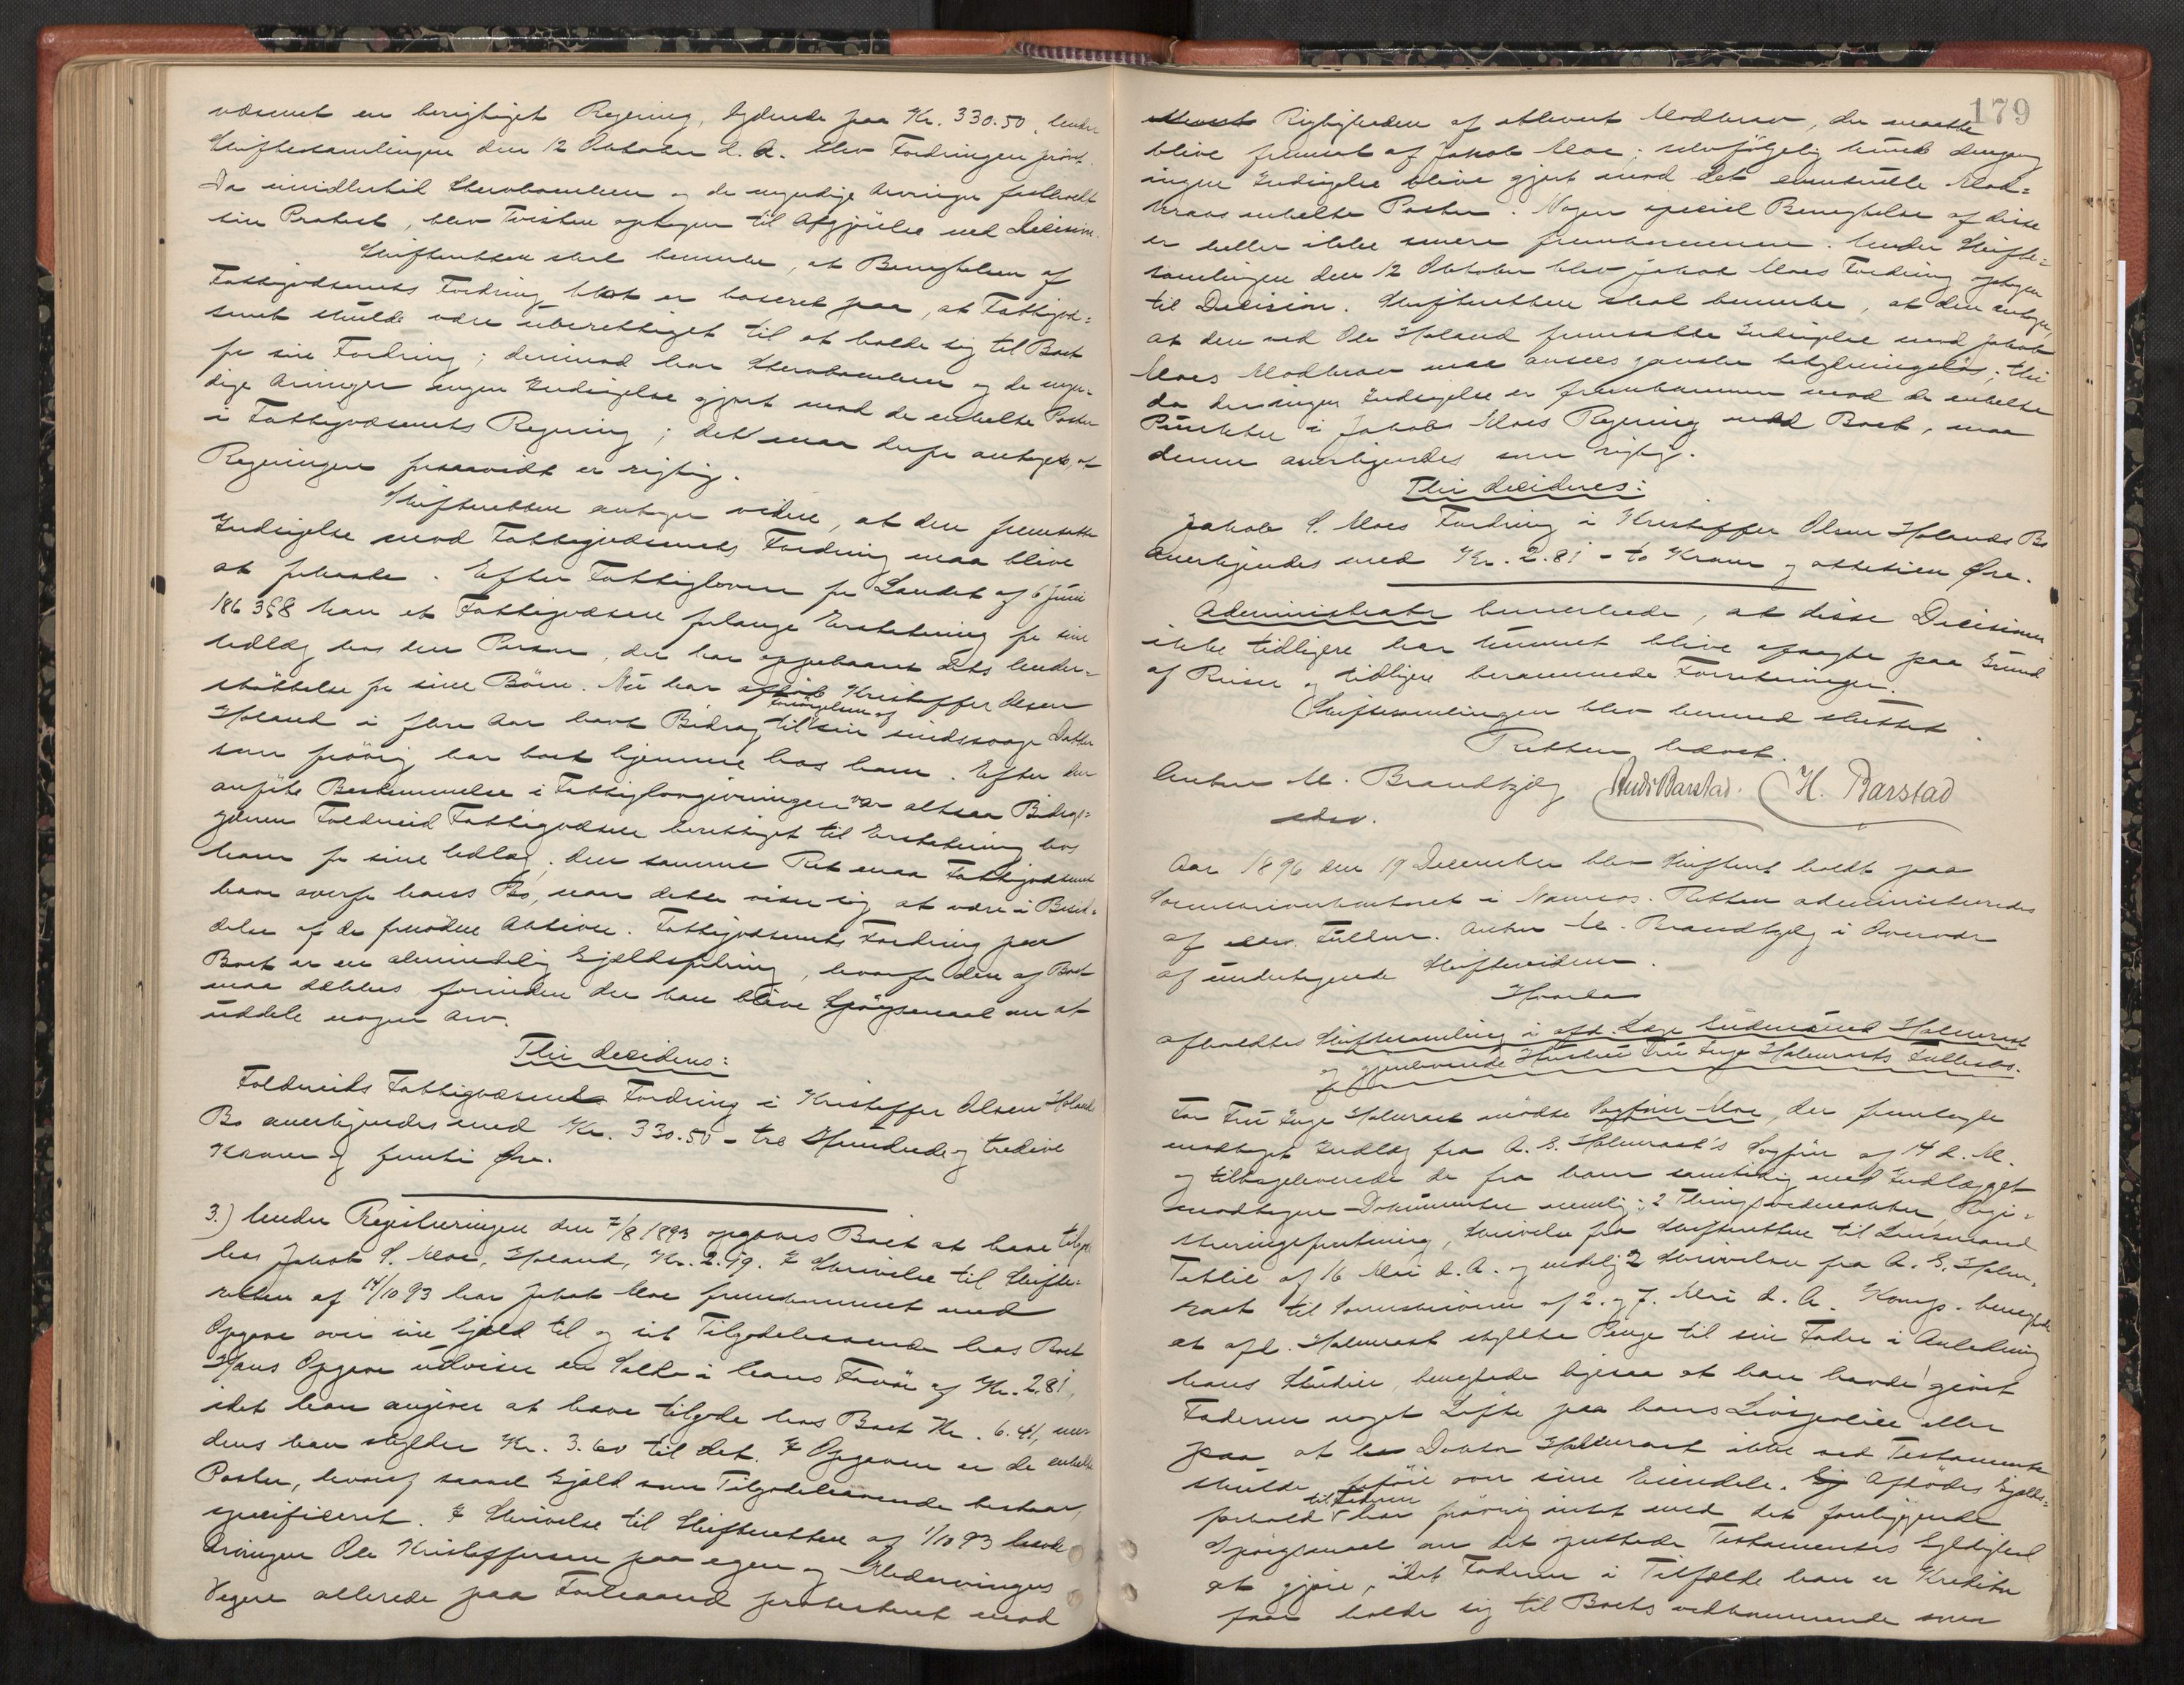 væsenet en berigtiget Regning, lydende paa Kr. 330.50. Under
Skiftesamlingen den 12 Oktober d. A. blev Fordringen prøvet.
Da imidlertid Stervboenken og de myndige Arvinger fastholdt
sin Protest, blev Tvisten optagen til Afgjørelse ved Decision.
Skifteretten skal bemerke, at Benegtelsen af
Fattigvæsenets Fordring blot er baseret paa, at Fattigvæ=
senet skulde være uberettiget til at holde sig til Boet
for sin Fordring; derimod har Stervboenken og de myn=
dige Arvinger ingen Indsigelse gjort mod de enkelte Poster
i Fattigvæsenets Regning; det maa derfor antages, at
Regningen forsaavidt er rigtig.
Skifteretten antager videre, at den fremsatte
Indsigelse mod Fattigvæsenets Fordring maa blive
at forkaste. Efter Fattigloven for Landet af 6 Juni
1863 § 8 kan et Fattigvæsen forlange Erstatning for sine
Udlæg hos den Person, der har oppebaaret dets Under=
støttelse for sine Børn. Nu har Kristoffer Olsen
Høland i flere Aar havt Bidrag til Forsørgelsen af sin sindssvage Datter
som forøvrig har boet hjemme hos ham. Efter den
anførte Bestemmelse i Fattiglovgivningen var altsaa Bidrags=
yderen Foldereid Fattigvæsen berettiget til Erstatning hos
ham for sine Udlæg; den samme Ret maa Fattigvæsenet
have overfor hans Bo, naar dette viser sig at være i Besid=
delse af de fornødne Aktiver. Fattigvæsenets Fordring paa
Boet er en almindelig Gjældsfordring, hvorfor den af Boet
maa dækkes forinden der kan blive Spørgsmaal om at
uddele nogen Arv.
Thi decideres:
Foldereids Fattigvæsens Fordring i Kristoffer Olsen Hølands
Bo anerkjendes med Kr. 330.50 - tre Hundrede og tredive
Kroner og femti Øre.
3.) Under Registreringen den 7/8 1893 opgaves Boet at have tilgode
hos Jakob S. Moe, Høland, Kr. 2.19. I Skrivelse til Skifte=
retten af 14/10 93 har Jakob Moe fremkommet med
Opgave over sin Gjæld til og sit Tilgodehavende hos Boet
Hans Opgave udviser en Saldo i hans Favør af Kr. 2.81,
idet han angiver at have tilgode hos Boet Kr. 6.41, mens
dens han skylder Kr. 3.60 til det. I Opgaven er de enkelte
Poster, hvoraf saavel Gjæld som Tilgodehavende bestaar,
specificeret. I Skrivelse til Skifteretten af 1/10 93 havde
Arvingen Ole Kristoffersen paa egne og Medarvingers
Vegne allerede paa Forhaand protesteret mod
179
Rigtigheden af ethvert Modkrav, der maatte
blive fremsat af Jakob Moe; selvfølgelig kunde dengang
ingen Indsigelse blive gjort mod det eventuelle Mod=
kravs enkelte Poster. Nogen speciel Benegtelse af disse
er heller ikke senere fremkommen. Under Skifte=
samlingen den 12 Oktober blev Jakob Moes Fordring optagen
til Decision. Skifteretten skal bemerke, at den antager,
at den ved Ole Høland fremsatte Indsigelse mod Jakob
Moes Modkrav maa ansees ganske betydningsløs; thi
da der ingen Indsigelse er fremkommen mod de enkelte
Punkter i Jakob Moes Regning mod Boet, maa
denne anerkjendes som rigtig.
Thi decideres:
Jakob S. Moes Fordring i Kristoffer Olsen Hølands Bo
anerkjendes med Kr. 2.81 - to Kroner og ottetien Øre.
Administrator bemerkede, at disse Decisioner
ikke tidligere har kunnet blive afsagte paa Grund
af Reiser og tidligere berammede Forretninger.
Skiftesamlingen blev hermed sluttet.
Retten hævet.
Anton M. Brandtzæg Anda Barstad. H. Barstad
edsv.
Aar 1896 den 19 December blev Skifteret holdt paa
Sorenskriverkontoret i Namsos. Retten administreredes
af edsv. Fuldm. Anton M. Brandtzæg i Overvær
af undertegnede Skiftevidner.
Hvorda
afholdtes Skiftesamling i afd. Læge Gudmund Halmrast
og gjenlevende Hustru Fru Inga Halmrasts Fællesbo.
For Fru Inga Halmrast mødte Sagfører Moe, der fremlagde
modtaget Indlæg fra A. G. Halmrast's Sagfører af 14 d. M.
og tilbageleverede de fra ham samtidig med Indlægget
modtagne Dokumenter nemlig: 2 Thingsvidneakter, Regi=
streringsforretning, Skrivelse fra Skifteretten til Lensmand
af 16 Mai d. A. og endelig 2 Skrivelser fra A. G. Halm=
rast til Sorenskriveren af 2. og 7. Mai d. A. Komp. benegtede
at afd. Halmrast skyldte Penge til sin Fader i Anledning
hans Studier, benegtede ligesaa at han havde givet
Faderen noget Løfte paa hans Livspolice eller
paa at Doktor Halmrast ikke ved Testamente
skulde raade over sine Eiendele. Afdødes Gjælds=
forhold til Faderen har forøvrig intet med det foreliggende
Spørgsmaal om det oprettede Testamentes Gyldighed
at gjøre, idet Faderen i Tilfælde han er Kreditor
faar holde sig til Boets vedkommende som